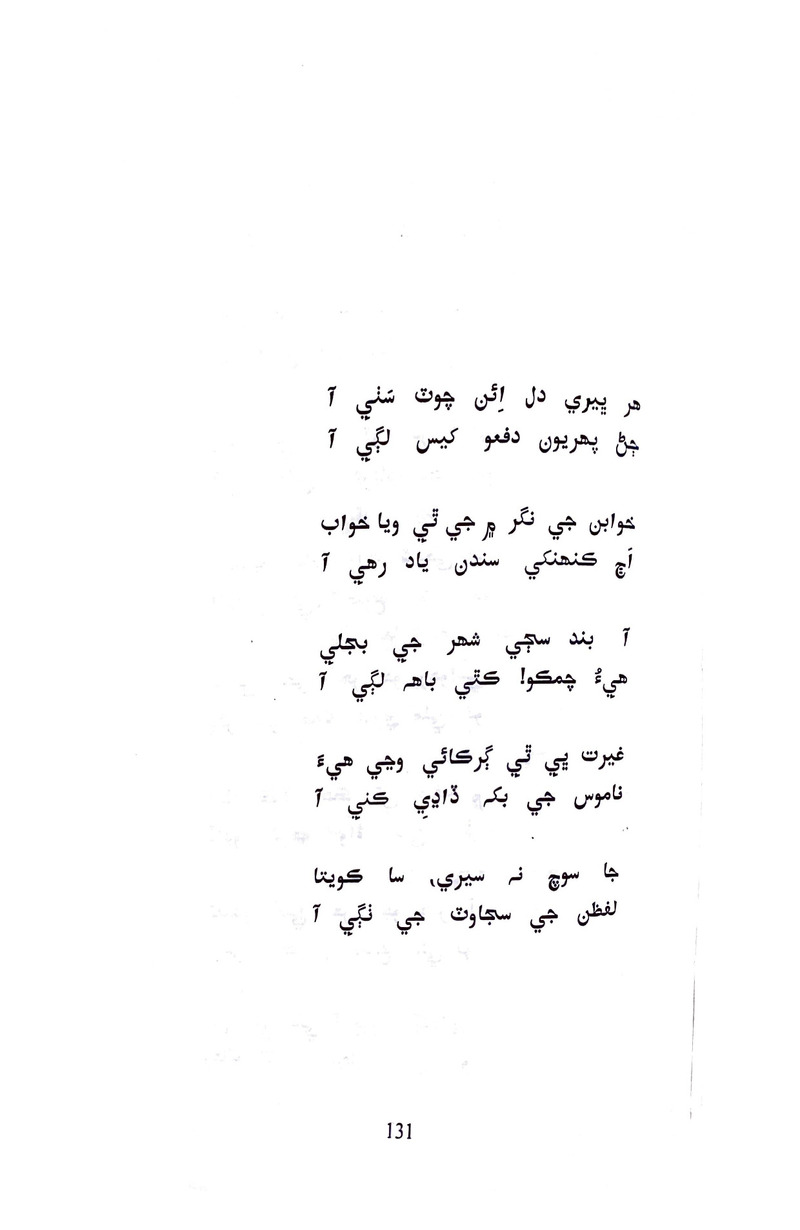 هر ڀيري دل اِئن چوٽ سَٺي آ
ڄڻ پهريون دفعو کيس لڳي آ
خوابن جي نگر ۾ جي ٿي ويا خواب
اَڄ ڪنهنکي سندن ياد رهي آ
آ بند سڄي شهر جي بجلي
هيءُ چمڪو! ڪٿي باهہ لڳي آ
غيرت ڀي ٿي ڳرڪائي وڃي هيءَ
ناموس جي بکہ ڏاڍِي ڪني آ
جا سوچ نہ سيري، سا ڪويتا
لفظن جي سجاوٽ جي ٺڳي آ
131